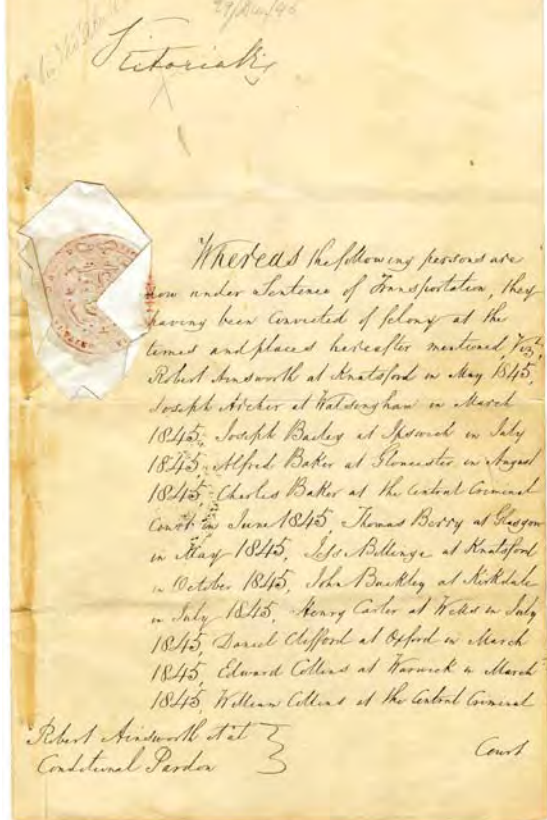 29/Dec/45
Victoria R
Whereas the following persons are
now under Sentence of Transportation, they
having been Convicted of felony at the
times and places hereafter mentioned, Vizt
Robert Ainsworth at Knutsford in May 1845,
Joseph Archer at Walsingham in March
1845, Joseph Bailey at Ipswich in July
1845, Alfred Baker at Gloucester in August
1845, Charles Baker at the Central Criminal
Court in June 1845, Thomas Berry at Glasgow
in May 1845, Billinge at Knutsford
in October 1845, John Buckley at Kirkdale
in July 1845, Henry Carter at Wells in July
1845, Daniel Clifford at Oxford in March
1845, Edward Collins at Warwick in March
1845, William Collins at the Central Criminal
Court
Robert Ainsworth et al
Conditional Pardon